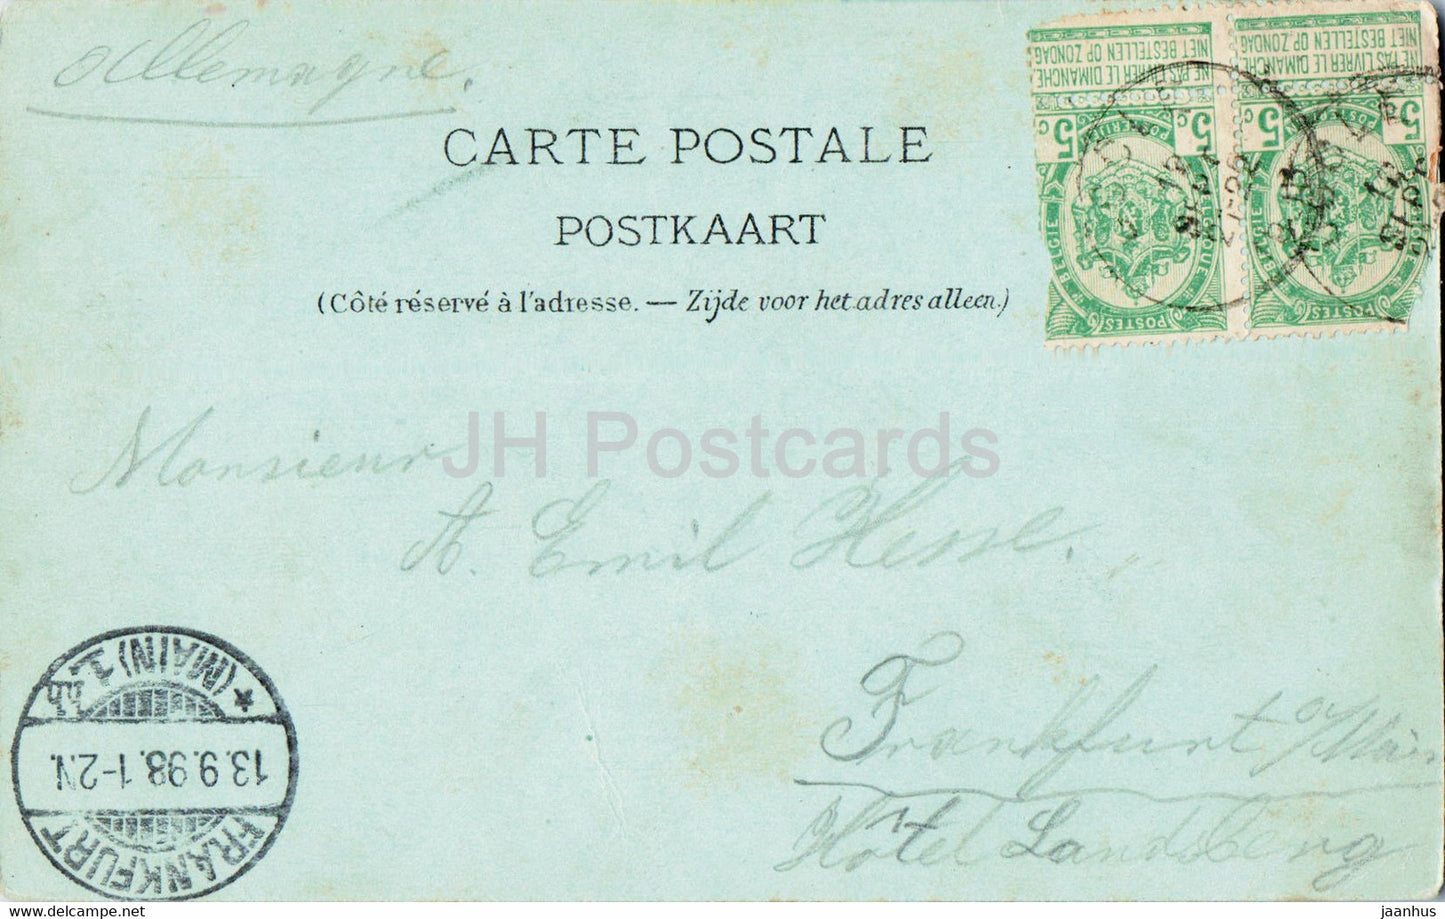 Allemagne.
CARTE POSTALE
POSTKAART
(Côté réservé à l'adresse. — Zijde voor het adres alleen.)
NE PAS LIVRER LE DIMANCHE
NIET BESTELLEN OP ZONDAG
5 c 5 c
BELGIE BELGIQUE
POSTES POSTERIJEN
NE PAS LIVRER LE DIMANCHE
NIET BESTELLEN OP ZONDAG
5 c 5
BELGIE
POSTES
JH Postcards
Monsieur
A. Emil Hesse.
Frankfurt o/Main
Hôtel Landsberg
FRANKFURT
13.9.98. 1-2N.
* (MAIN) 1.
hip-lux.com jaanhus